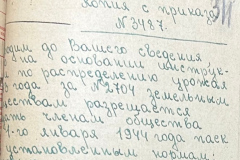 Копия с приказа
№ 3487.
дим до Вашего сведения
на основании инструк-
по распределению урожая
года за № 2704 земельным
ствам разрешается
членам общества
1-го января 1944 года паек
установленным нормам: